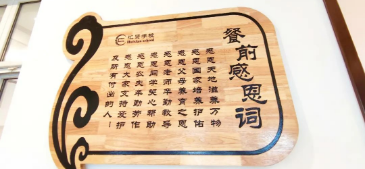 餐前感恩词
感恩天地滋养万物
感恩国家培养护佑
感恩父母养育之恩
感恩老师辛勤教导
感恩同学关心帮助
感恩农夫辛勤劳作
感恩大家支持爱护
及所有付出的人！
汇贤学校